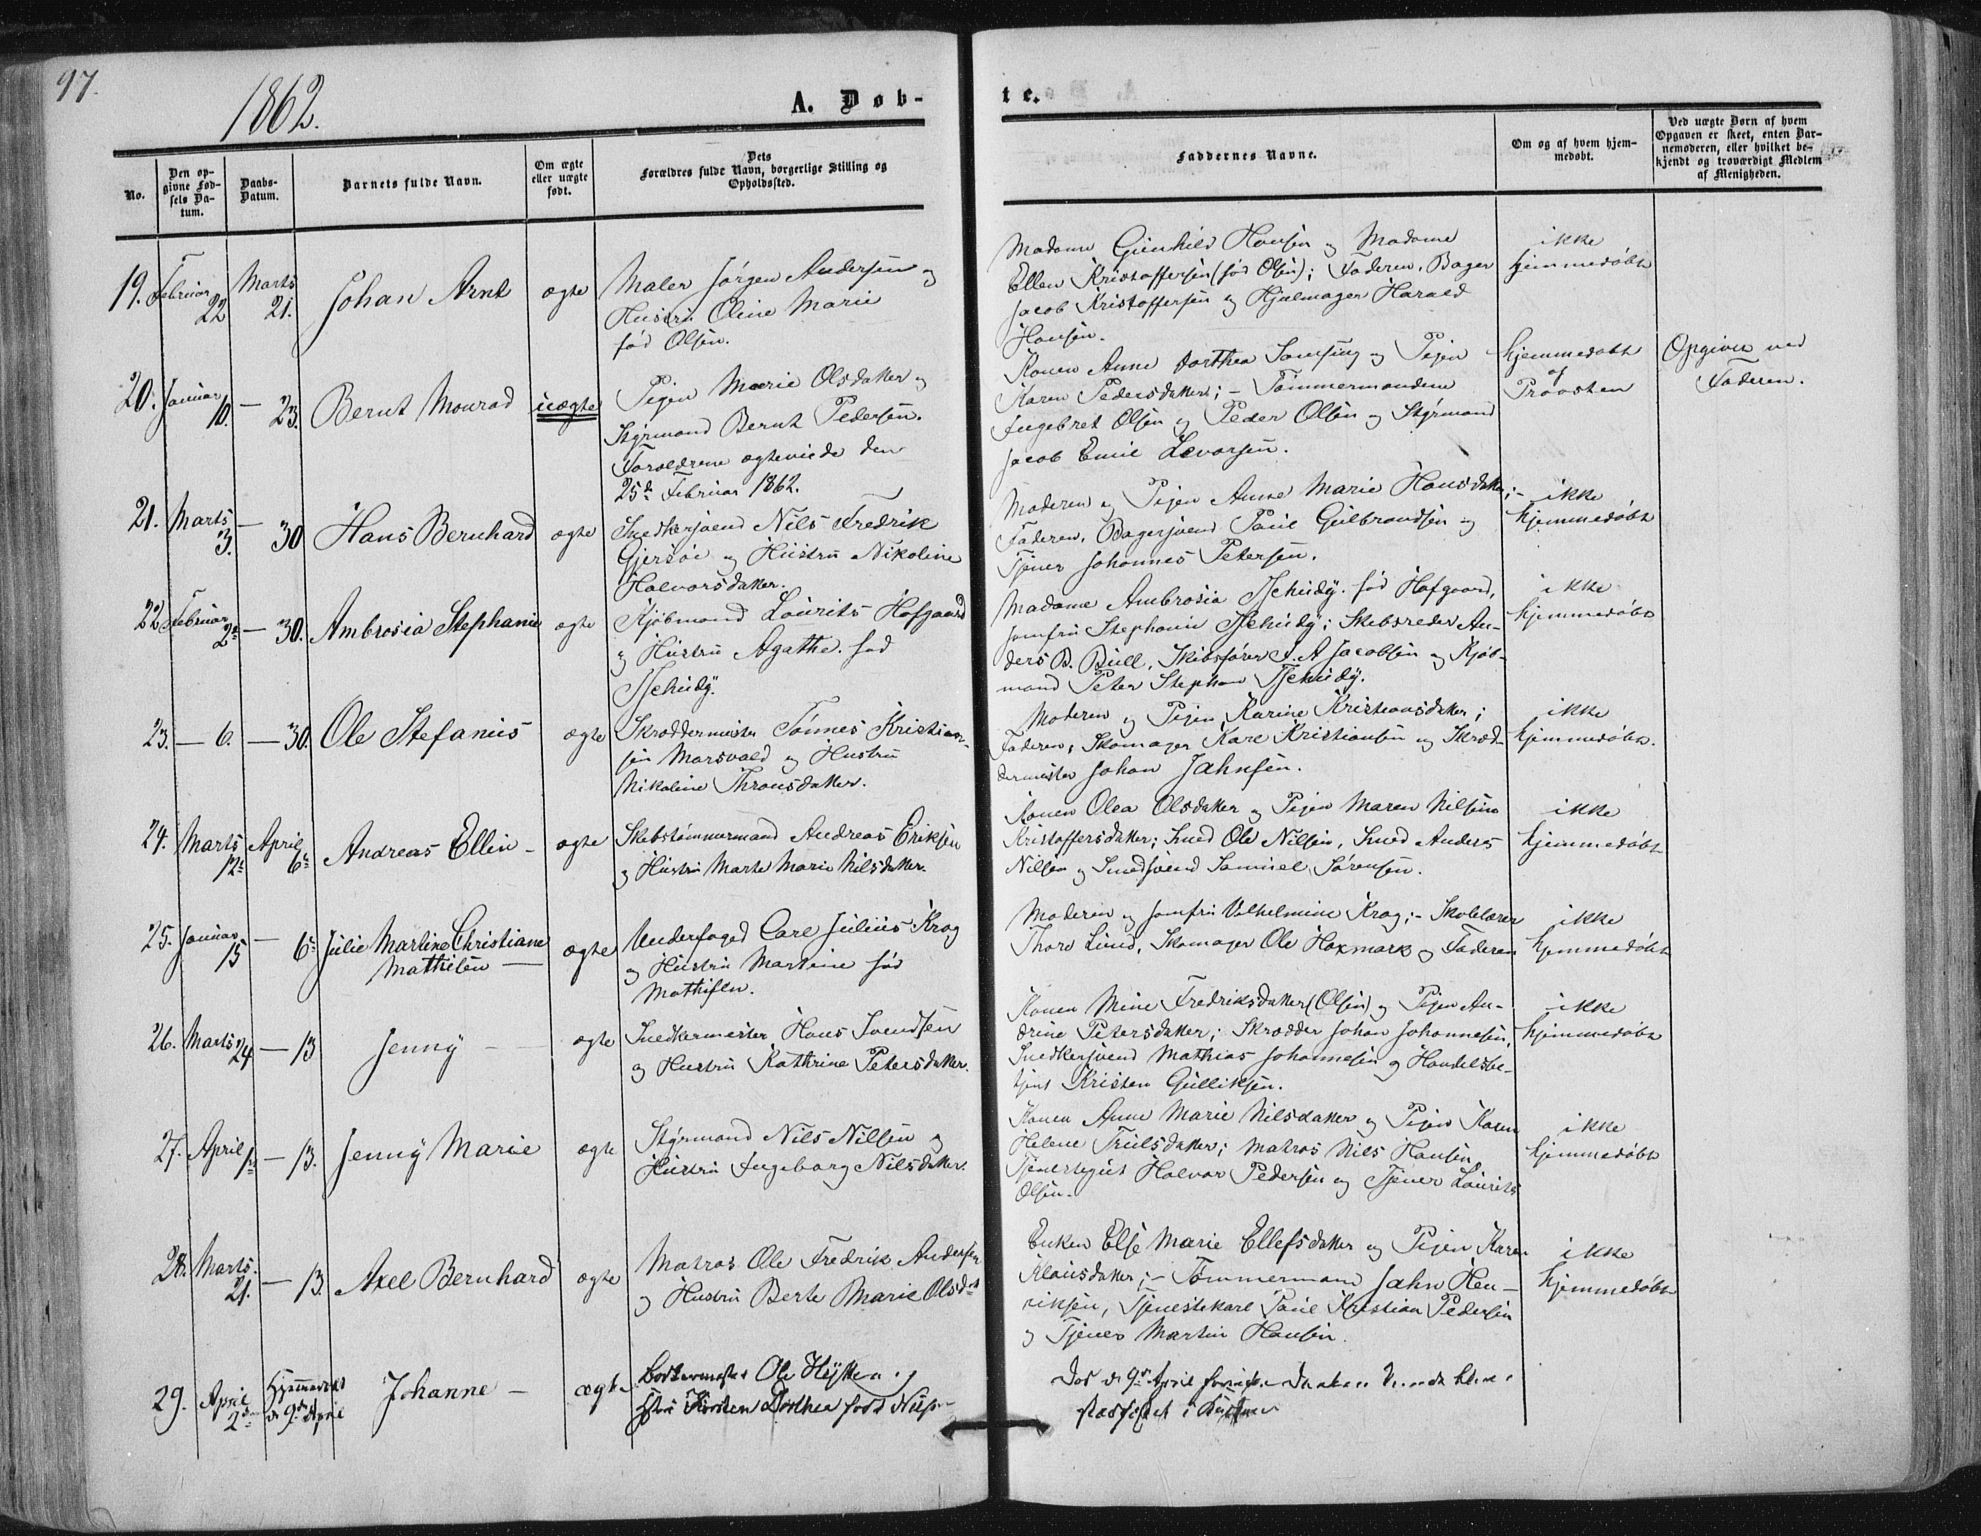 97.
1862.
A. Døb-
te.
No.
Den op-
givne Fød-
sels Da-
tum.
Daabs-
Datum.
Barnets fulde Navn.
Om ægte
eller uægte
født.
Dets
Forældres fulde Navn, borgerlige Stilling og
Opholdssted.
Faddernes Navne.
Om og af hvem hjem-
medøbt.
Ved uægte Børn af hvem
Opgaven er skeet, enten Bar-
nemoderen, eller hvilket be-
kjendt og troværdigt Medlem
af Menigheden.
19. Februar 22 Marts 21. Johan Arnt ægte
Maler Jørgen Andersen og
Hustru Oline Marie
fød Olsen.
Madame Gunhild Hansen og Madame
Ellen Kristoffersen (fød Olsen); Faderen, Bager
Jacob Kristoffersen og Hjulmager Harald
Hansen.
ikke
hjemmedøbt
20. Januar 10. — 23. Bernt Monrad uægte
Pigen Marie Olsdatter og
Styrmand Bernt Pedersen.
Forældrene ægteviede den
25de Februar 1862.
Konen Anne Dorthea Samsing og Pigen
Karen Pedersdatter; – Tømmermændene
Ingebret Olsen og Peder Olsen og Styrmand
Jacob Emil Levorsen.
hjemmedøbt
af
Provsten
Opgiven ved
Faderen.
21. Marts 3. — 30 Hans Bernhard ægte
Snedkersvend Nils Fredrik
Gjersøe og Hustru Nikoline
Halvorsdatter.
Moderen og Pigen Anne Marie Hansdatter; –
Faderen, Bagersvend Paul Gulbrandsen og
Tjener Johannes Petersen.
ikke
hjemmedøbt
22. Februar 2de — 30. Ambrosia Stephanie ægte
Kjøbmand Laurits Hofgaard
og Hustru Agathe fød
Tschudy.
Madame Ambrosia Tschudy fød Hofgaard,
Jomfru Stephanie Tschudy; Skibsreder An-
ders B. Bull, Skibsfører J. A Jacobsen og Kjøb-
mand Peter Stephan Tschudy.
ikke
hjemmedøbt
23. — 6. — 30. Ole Stefanius ægte
Skræddermester Tønnes Kristian-
sen Morsvald og Hustru
Nikoline Thronsdatter.
Moderen og Pigen Karine Kristiansdatter;
Faderen, Skomager Karl Kristiansen og Skræd-
dermester Johan Jahnsen.
ikke
hjemmedøbt.
24. Marts 12te April 6te Andreas Ellin – ægte
Skibstømmermand Andreas Eriksen
og Hustru Marte Marie Nilsdatter.
Konen Olea Olsdatter og Pigen Maren Nilsine
Kristoffersdatter; Smed Ole Nilsen, Smed Anders
Nilsen og Smedsvend Samuel Sørensen.
ikke
hjemmedøbt
25. Januar 15 — 6te Julie Martine Christiane
Mathisen — ægte
Underfoged Carl Julius Krog
og Hustru Martine fød
Mathisen.
Moderen og Jomfru Vilhelmine Krog; – Skolelærer
Thore Lund, Skomager Ole Haxmark og Faderen
ikke
hjemmedøbt
26. Marts 24 — 13 Jenny — ægte
Snedkermester Hans Svendsen
og Hustru Kathrine Petersdatter.
Konen Mine Fredriksdatter (Olsen) og Pigen An-
drine Petersdatter; Skrædder Johan Johannesen,
Snedkersvend Mathias Johannesen og Handelsbe-
tjent Kristen Gulliksen.
ikke
hjemmedøbt
27. April 1ste — 13. Jenny Marie ægte
Styrmand Nils Nilsen og
Hustru Ingeborg Nilsdatter.
Konen Anne Marie Nilsdatter og Pigen Karen
Helene Trulsdatter; Matros Nils Hansen,
Tjenestegut Halvor Pedersen og Tjener Laurits
Olsen.
ikke
hjemmedøbt
28. Marts 21. — 13. Axel Bernhard ægte
Matros Ole Fredrik Andersen
og Hustru Berte Marie Olsdtr
Enken Else Marie Ellefsdatter og Pigen Karen
Klausdatter; – Tømmermand Jahn Hen-
riksen, Tjenestekarl Paul Kristian Pedersen
og Tjener Martin Hansen.
ikke
hjemmedøbt
29. April 2den Hjemmedøbt
d 9de April Johanne – ægte
Ole
Dorthea født
d 9de April
i